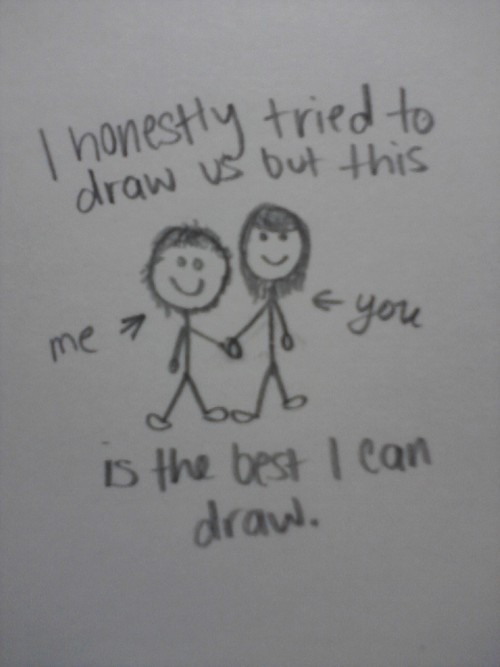 I honestly tried to
draw us but this
me
you
is the best I can
draw.